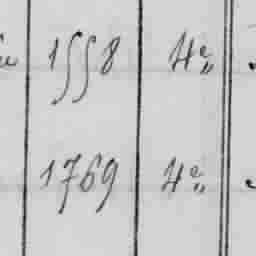 1558 4e„
1769 4e„